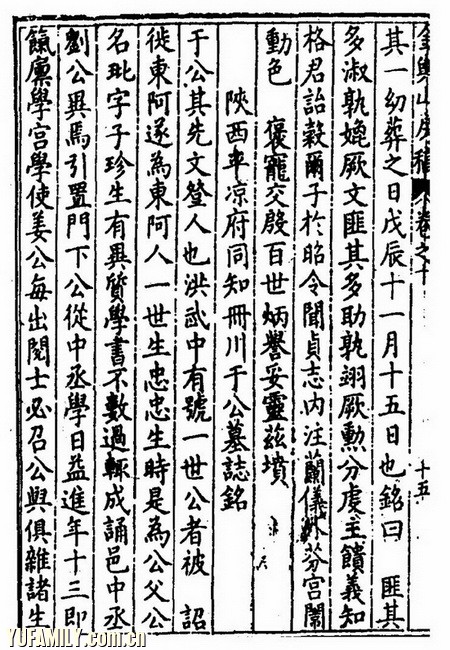 金輿山房稿 卷之十 十五
其一幼葬之日戊辰十一月十五日也銘曰 匪其
多淑孰媲厥文匪其多助孰翊厥勲分虔主饋義知
格君詒穀爾子於昭令聞貞志內注蘭儀外芬宮闈
動色 褒寵交殷百世炳譽妥靈茲墳
陝西平凉府同知冊川于公墓誌銘
于公其先文登人也洪武中有號一世公者被 詔
徙東阿遂為東阿人一世生忠忠生時是為公父公
名玭字子珍生有異質學書不數過輒成誦邑中丞
劉公異焉引置門下公從中丞學日益進年十三即
廩學宮學使姜公每出閱士必召公與俱雜諸生
YUFAMILY.com.cn